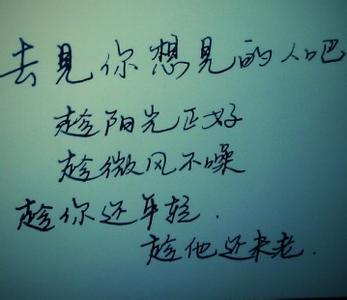 去見你想見的人吧
趁阳光正好
趁微风不噪
趁你还年轻.
趁他还未老.